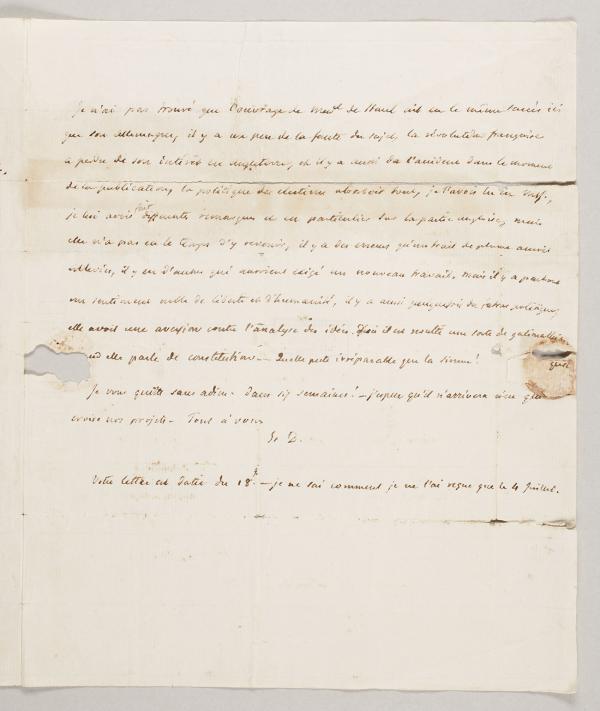 Je n'ai pas trouvé que l'ouvrage de Mad. de Stael ait eu le même succès ici
que son Allemagne, il y a un peu de la faute du sujet, la révolution française
a perdu de son intérêt en Angleterre, et il y a aussi de l'accident dans le moment
de la publication, la politique des élections absorboit tout, je l'avois lu en Msf.,
je lui avois fait différentes remarques et en particulier sur la partie anglaise, mais
elle n'a pas eu le temps d'y revenir, il y a des erreurs qu'un trait de plume auroit
enlevées, il y en d'autres qui auroient exigé un nouveau travail. mais il y a partout
un sentiment noble de liberté et d'humanité, il y a aussi
elle avoit une aversion contre l'analyse des idées. D'où il est resulté une sorte de galimathias
nd elle parle de constitution — Quelle perte irréparable que la sienne!
Je vous quitte sans adieu. dans six semaines! — j'espere qu'il n'arrivera rien qui
croise nos projets — Tout à vous
Et. D.
Votre lettre est datée du 18. — je ne sai comment je ne l'ai reçue que le 4 Juillet.